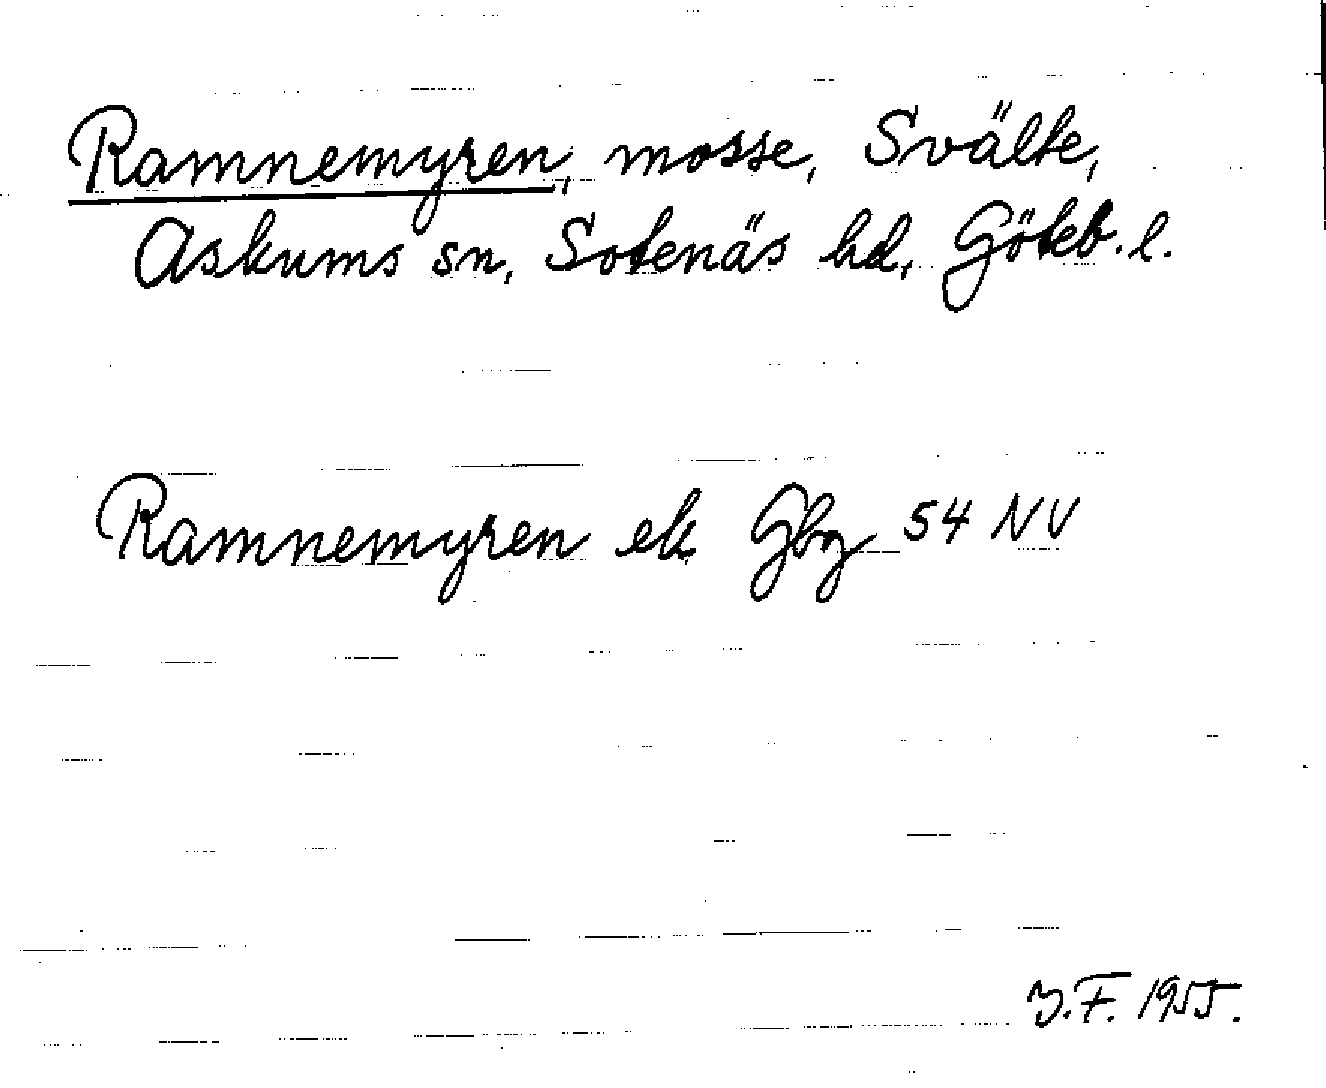 Ramnemyren, mosse, Svälte,
Askums sn, Sotenäs hd, Göteb. l.
Ramnemyren ek Gbg 54 NV
Y.F. 1955.